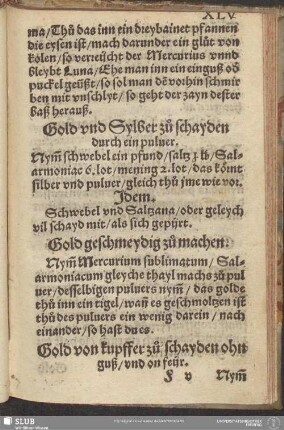 XLV
ma/Thů das inn ein dreybainet pfannen
die eysen ist/mach darunder ein glůt von
kolen/so verreücht der Mercurius vnnd
bleybt Luna/Ehe man inn ein einguß oď
puckel geüßt/so sol man dē vorhin schmir
ben mit vnschlyt/so geht der zayn dester
baß herauß.
Gold vnd Sylber zů schayden
durch ein puluer.
Nym̄ schwebel ein pfund/saltz ʒ. lb/Sal-
armoniac 6. lot/mening 2. lot/das kōmt
silber vnd puluer/gleich thů jme wie vor.
Idem.
Schwebel vnd Saltzana/oder geleych
vil schayd mit/als sich gepürt.
Gold geschmeydig zů machen.
Nym̄ Mercurium sublimatum/Sal-
armoniacum gleyche thayl machs zů pul
uer/desselbigen puluers nym̄/das golde
thů inn ein tigel/wañ es geschmoltzen ist
thů des puluers ein wenig darein/nach
einander/so hast du es.
Gold von kupffer zů schayden ohn
guß/vnd on feür.
F v Nym̄
SLUB